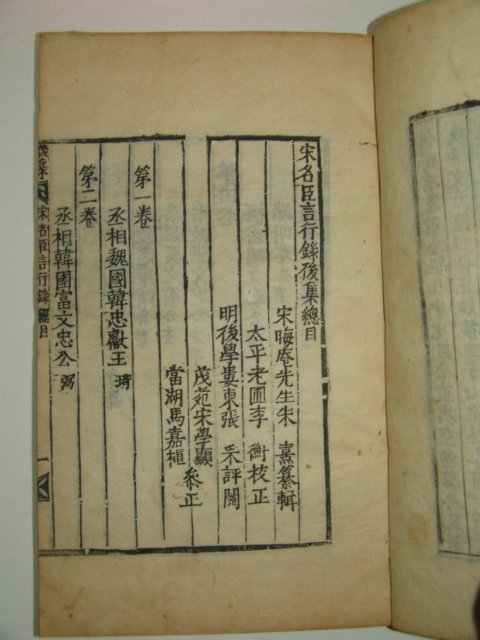 宋名臣言行錄後集總目
宋晦庵先生朱 熹纂輯
太平老圃李 衡校正
明後學婁東張 采評閱
茂苑宋學顯
當湖馬嘉植
參正
第一卷
丞相魏國韓忠獻王 琦
第二卷
丞相韓國富文忠公 弼
宋名臣言行錄 總目 一